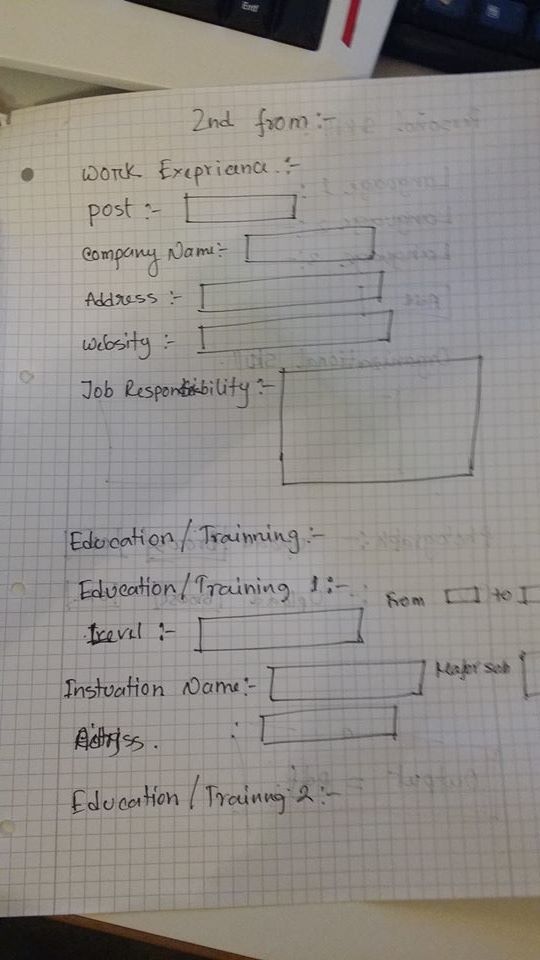 Enti
2nd from :-
Work Exepriance :-
post :-
Company Name :-
Address :-
Websity :-
Job Responsibility :-
Education / Trainning :-
Education / Training 1 :-
from to
Level :-
Instuation Name :- Major sub
:
Education / Trainng 2 :-